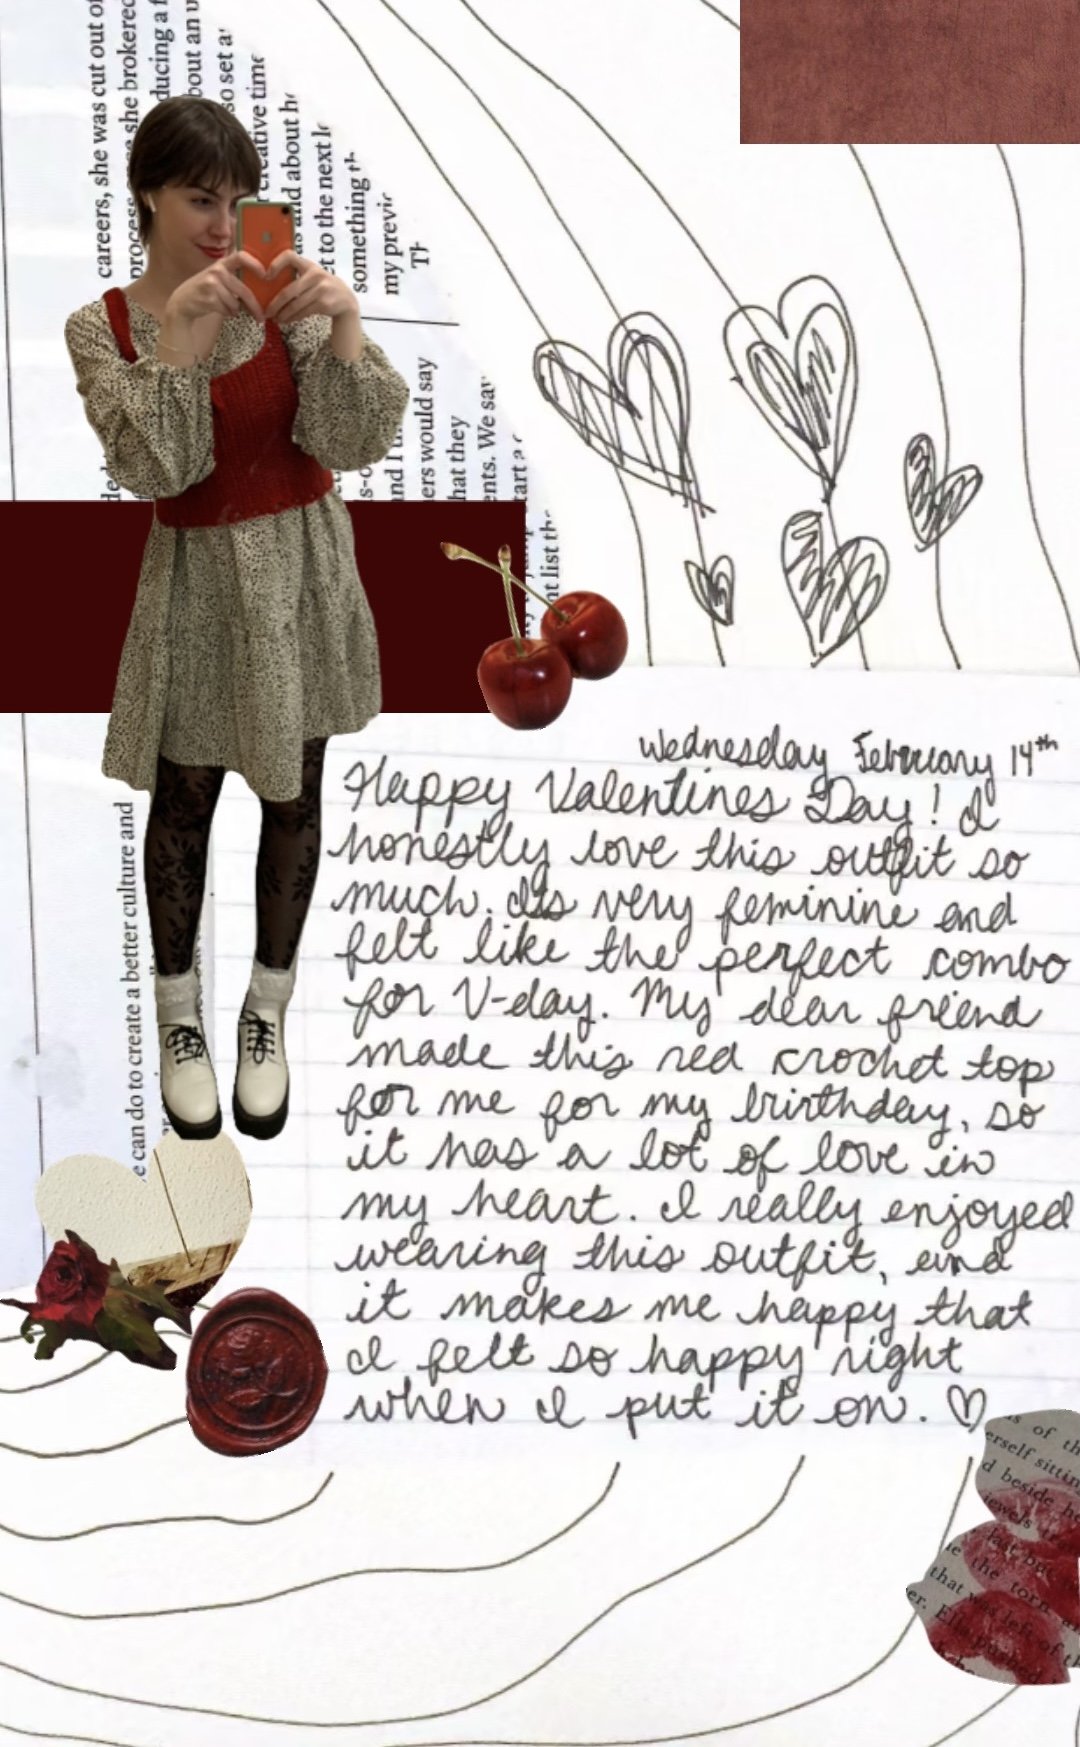 careers, she was cut out of
she brokered
ducing a f
bout an u
so set a
creative time
as and about he
et to the next l
something th
my previ
Th
and I
ers would say
hat they
ents. We sav
start a
nt list the
Wednesday February 14th
Happy Valentines Day! I
honestly love this outfit so
much. Its very feminine and
felt like the perfect combo
for V-day. My dear friend
made this red crochet top
for me for my birthday, so
it has a lot of love in
my heart. I really enjoyed
wearing this outfit, and
it makes me happy that
I felt so happy right
when I put it on. ♡
e can do to create a better culture and
is of th
erself sittin
d beside he
jewels
last but
the torn
that was left of th
er. Ella pushed